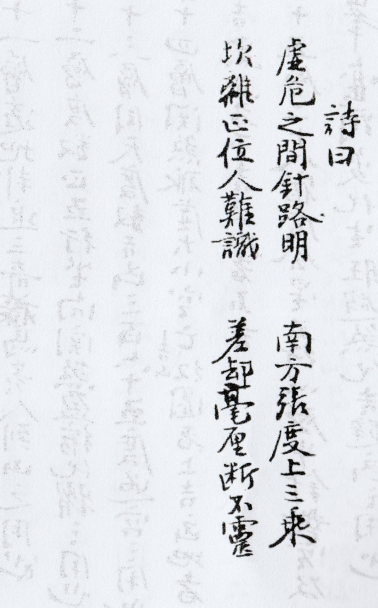 詩曰
虛危之間針路明　南方張度上三乘
坎離正位人難識　差却毫厘断不靈